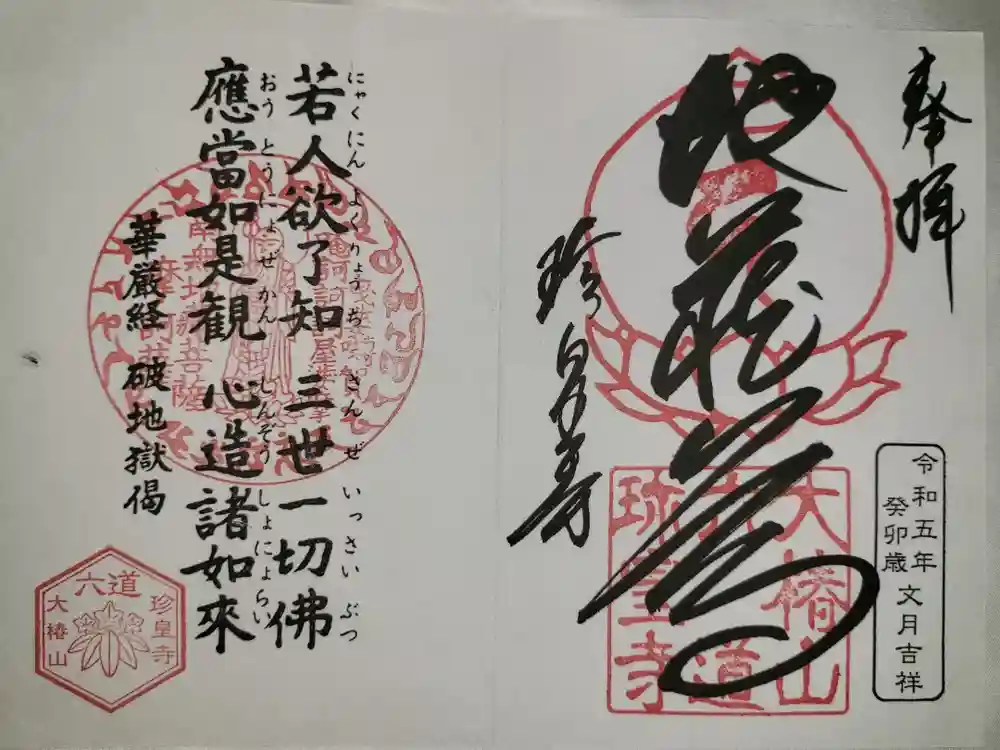 奉拝
地蔵尊
珍皇寺
令和五年
癸卯歳
文月吉祥
大椿山
六道
珎皇寺
若人欲了知 三世一切佛
にゃくにんよくりょうち さんぜいっさいぶつ
應當如是観 心造諸如來
おうとうにょぜかん しんぞうしょにょらい
華厳経 破地獄偈
南無地蔵菩薩
六道
珍皇寺
大椿山